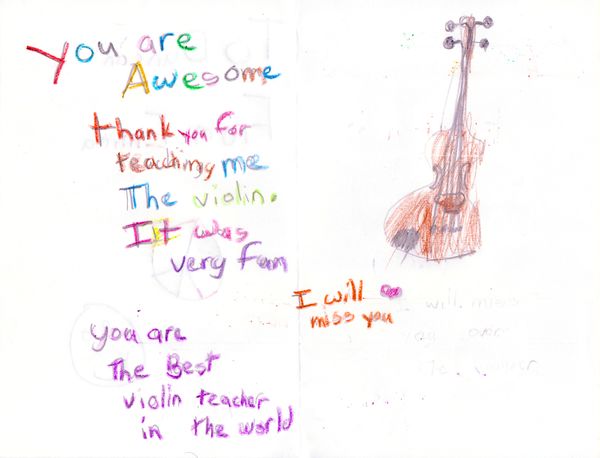 You are
Awesome
thank you for
teaching me
The violin.
It was
very fun
I will
miss you
you are
The Best
violin teacher
in the world
I will miss
you over
the